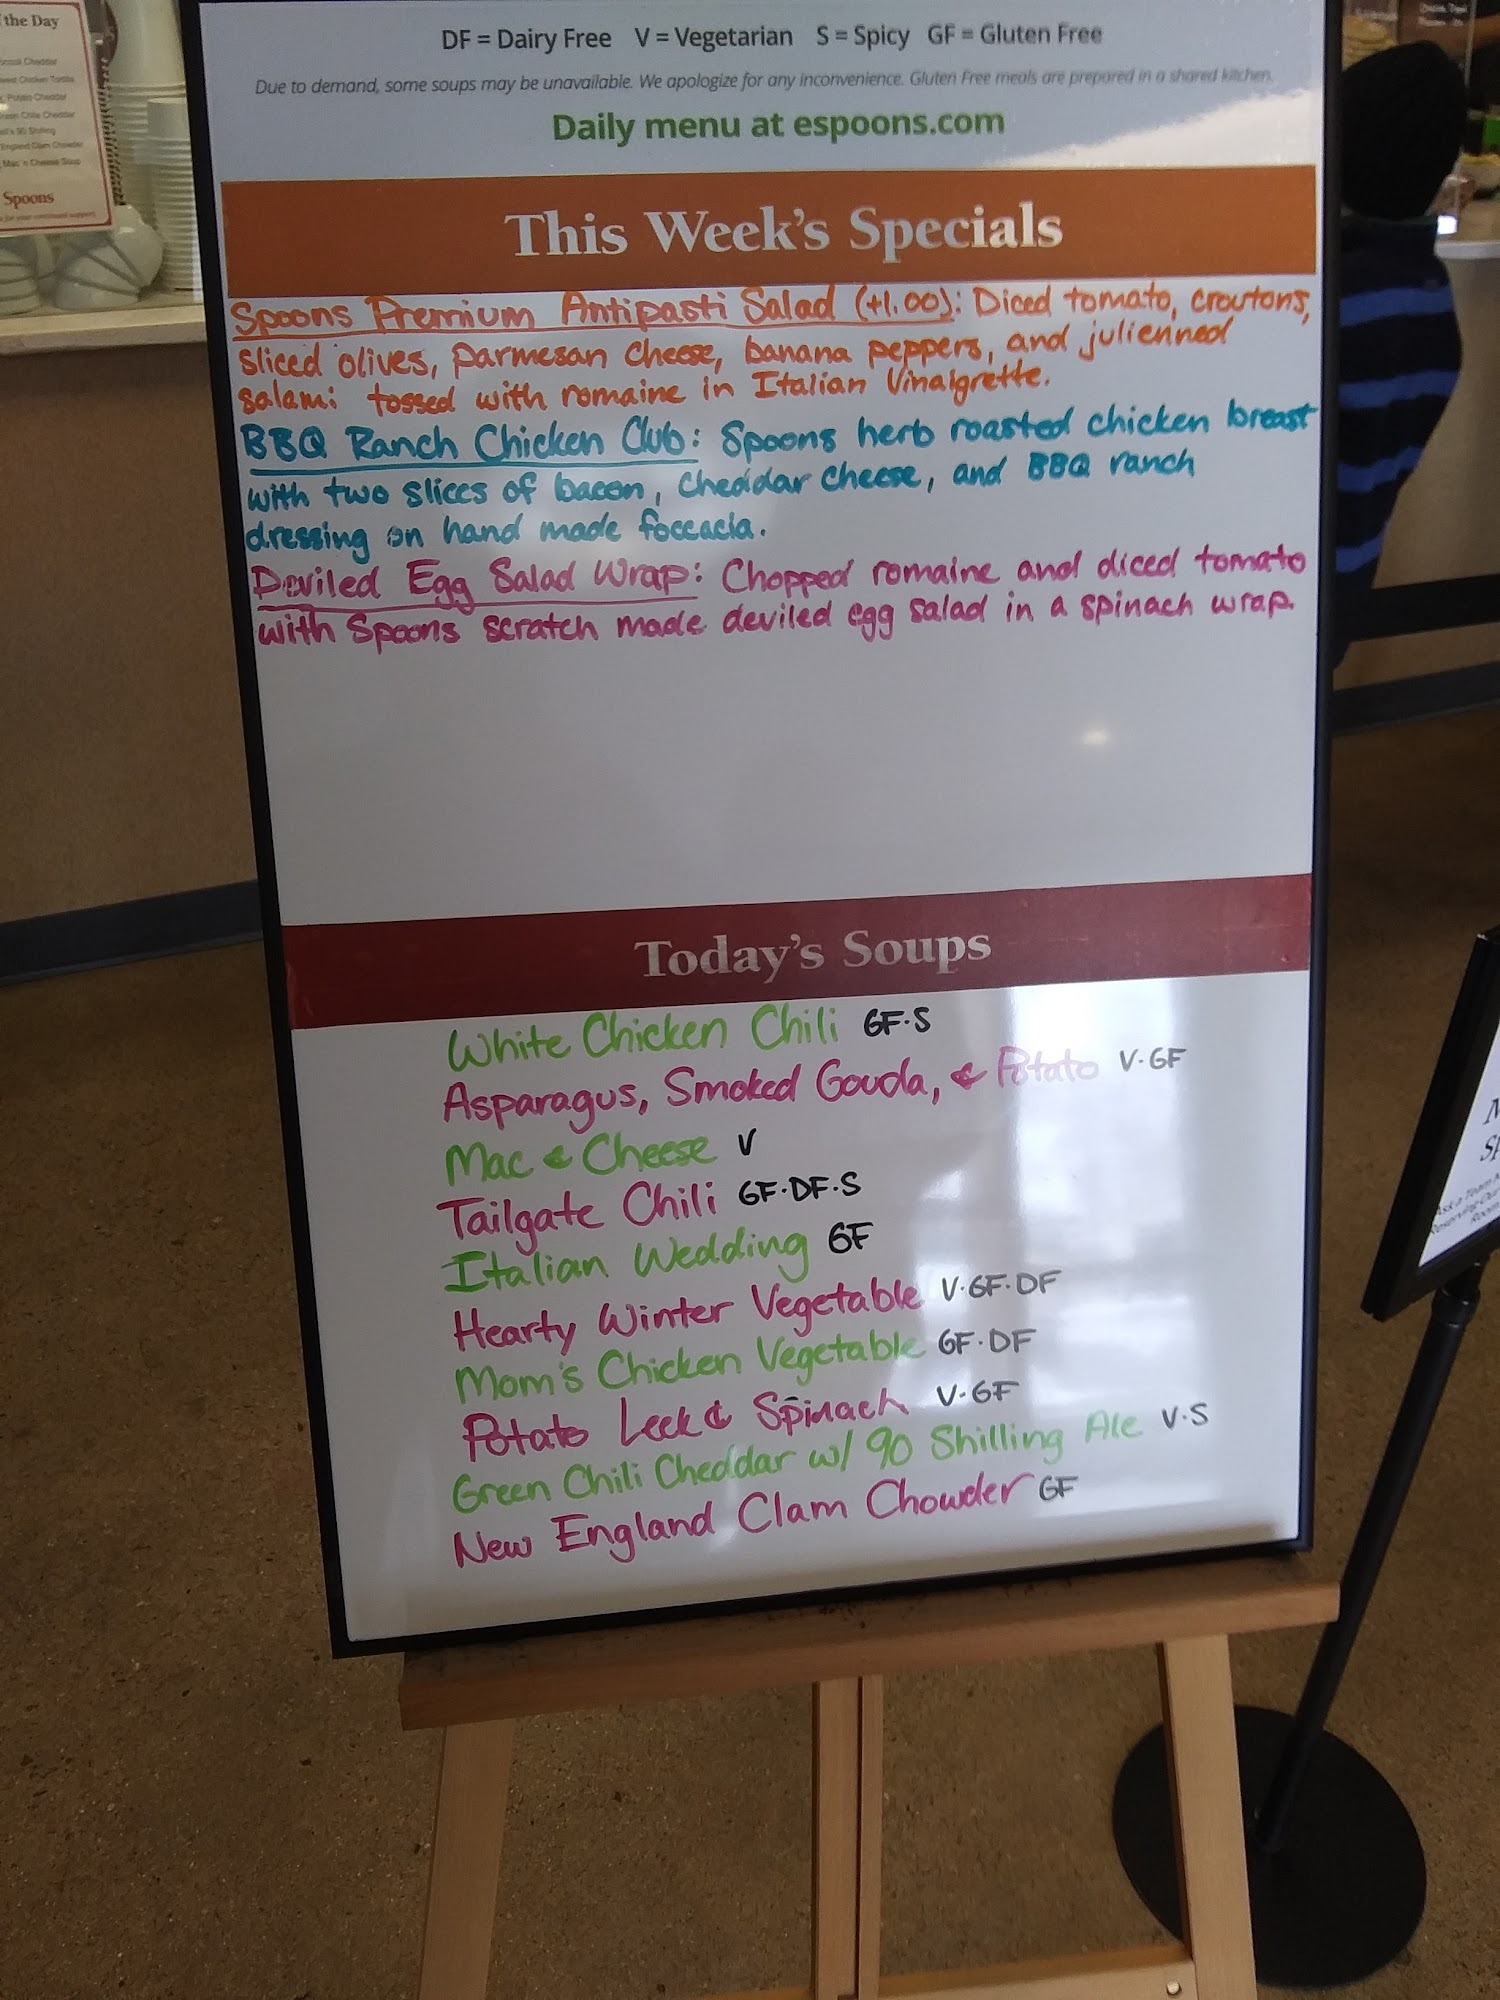 the Day
Potato Cheddar
England Clam Chowder
Mac n Cheese Soup
Spoons
for your continued support
DF = Dairy Free V = Vegetarian S = Spicy GF = Gluten Free
Due to demand, some soups may be unavailable. We apologize for any inconvenience. Gluten Free meals are prepared in a shared kitchen.
Daily menu at espoons.com
This Week's Specials
Spoons Premium Antipasti Salad (+1.00): Diced tomato, croutons,
sliced olives, parmesan cheese, banana peppers, and julienned
salami tossed with romaine in Italian Vinaigrette.
BBQ Ranch Chicken Club: Spoons herb roasted chicken breast
with two slices of bacon, cheddar cheese, and BBQ ranch
dressing on hand made foccacia.
Deviled Egg Salad Wrap: Chopped romaine and diced tomato
with Spoons scratch made deviled egg salad in a spinach wrap.
Today's Soups
White Chicken Chili GF·S
Asparagus, Smoked Gouda, & Potato V·GF
Mac & Cheese V
Tailgate Chili GF·DF·S
Italian Wedding GF
Hearty Winter Vegetable V·GF·DF
Mom's Chicken Vegetable GF·DF
Potato Leek & Spinach V·GF
Green Chili Cheddar w/ 90 Shilling Ale V·S
New England Clam Chowder GF